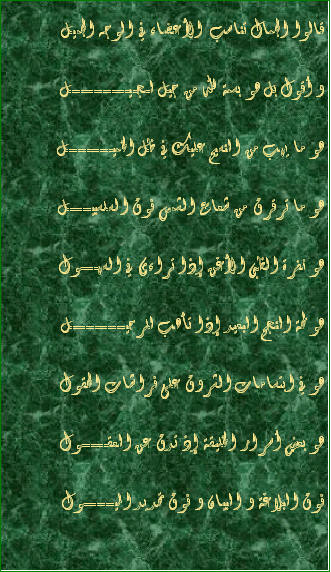 قالوا الجمال تناسب الأعضاء في الوجه الجميل
و أقول بل هو بسمة من جيل لجيـــــــل
هو ما يهب من النسيم عليك في ظل الخيـــــل
هو ما ترقرق من شعاع الشمس فوق السلسبيـــل
هو نفرة الظبي الأغن إذا تراءى في السهـــول
هو لمحة النجم البعيد إذا تأهب للرحيـــــــل
هو في ابتسامات الشروق على فراشات الحقول
هو بعض أسرار الخليقة إذ تدق عن العقـــول
فوق البلاغة و البيان و فوق تحديد الميـــول